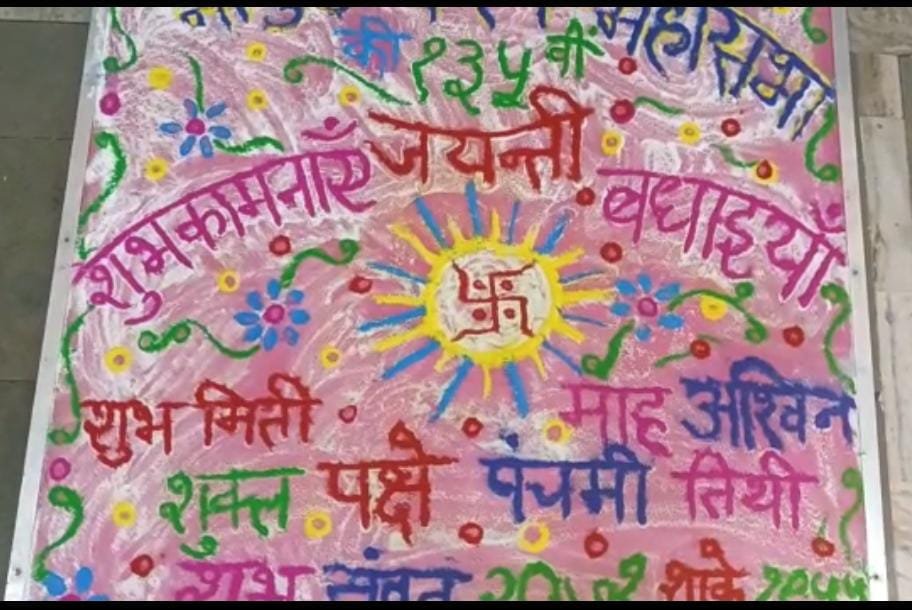 महासभा
की १३५ वीं
जयन्ती
शुभकामनाएँ बधाइयाँ
शुभ मिती माह अश्विन
शुक्ल पक्षे पंचमी तिथी
शुभ संवत शाके